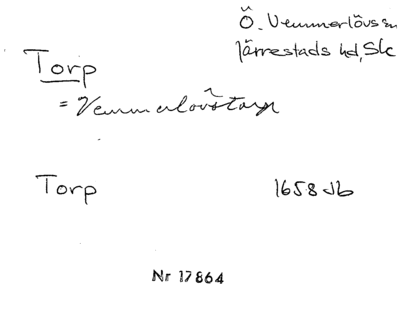 Ö. Vemmerlövs sn
Järrestads hd, Sk
Torp
= Vemmerlövstorp
Torp 1658 Jb
Nr 17864